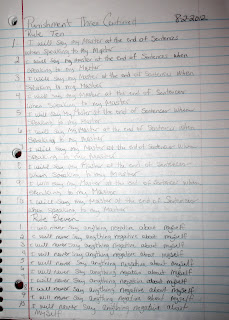 Punishment Phase Continued 8-2-2012
Rule Ten
1 I will say my Master at the end of Sentences
when speaking to My Master
2 I will say my Master at the end of Sentences when
speaking to my Master
3 I will say my Master at the end of Sentences when
speaking to my Master
4 I will say my Master at the end of Sentences
when speaking to my Master
5 I will say my Master at the end of Sentences when
speaking to my Master
6 I will say my Master at the end of Sentences when
speaking to my Master
7 I will say my Master at the end of Sentences when
speaking to my Master
8 I will say my Master at the end of Sentences
when speaking to my Master
9 I will say my Master at the end of Sentences when
speaking to my Master
10 I will say my Master at the end of Sentences
when speaking to my Master
Rule Eleven
1 I will never say anything negative about myself
2 I will never say anything negative about myself
3 I will never say anything negative about myself
4 I will never say anything negative about myself
5 I will never say anything negative about myself
6 I will never say anything negative about myself
7 I will never say anything negative about myself
8 I will never say anything negative about myself
9 I will never say anything negative about myself
10 I will never say anything negative about
myself